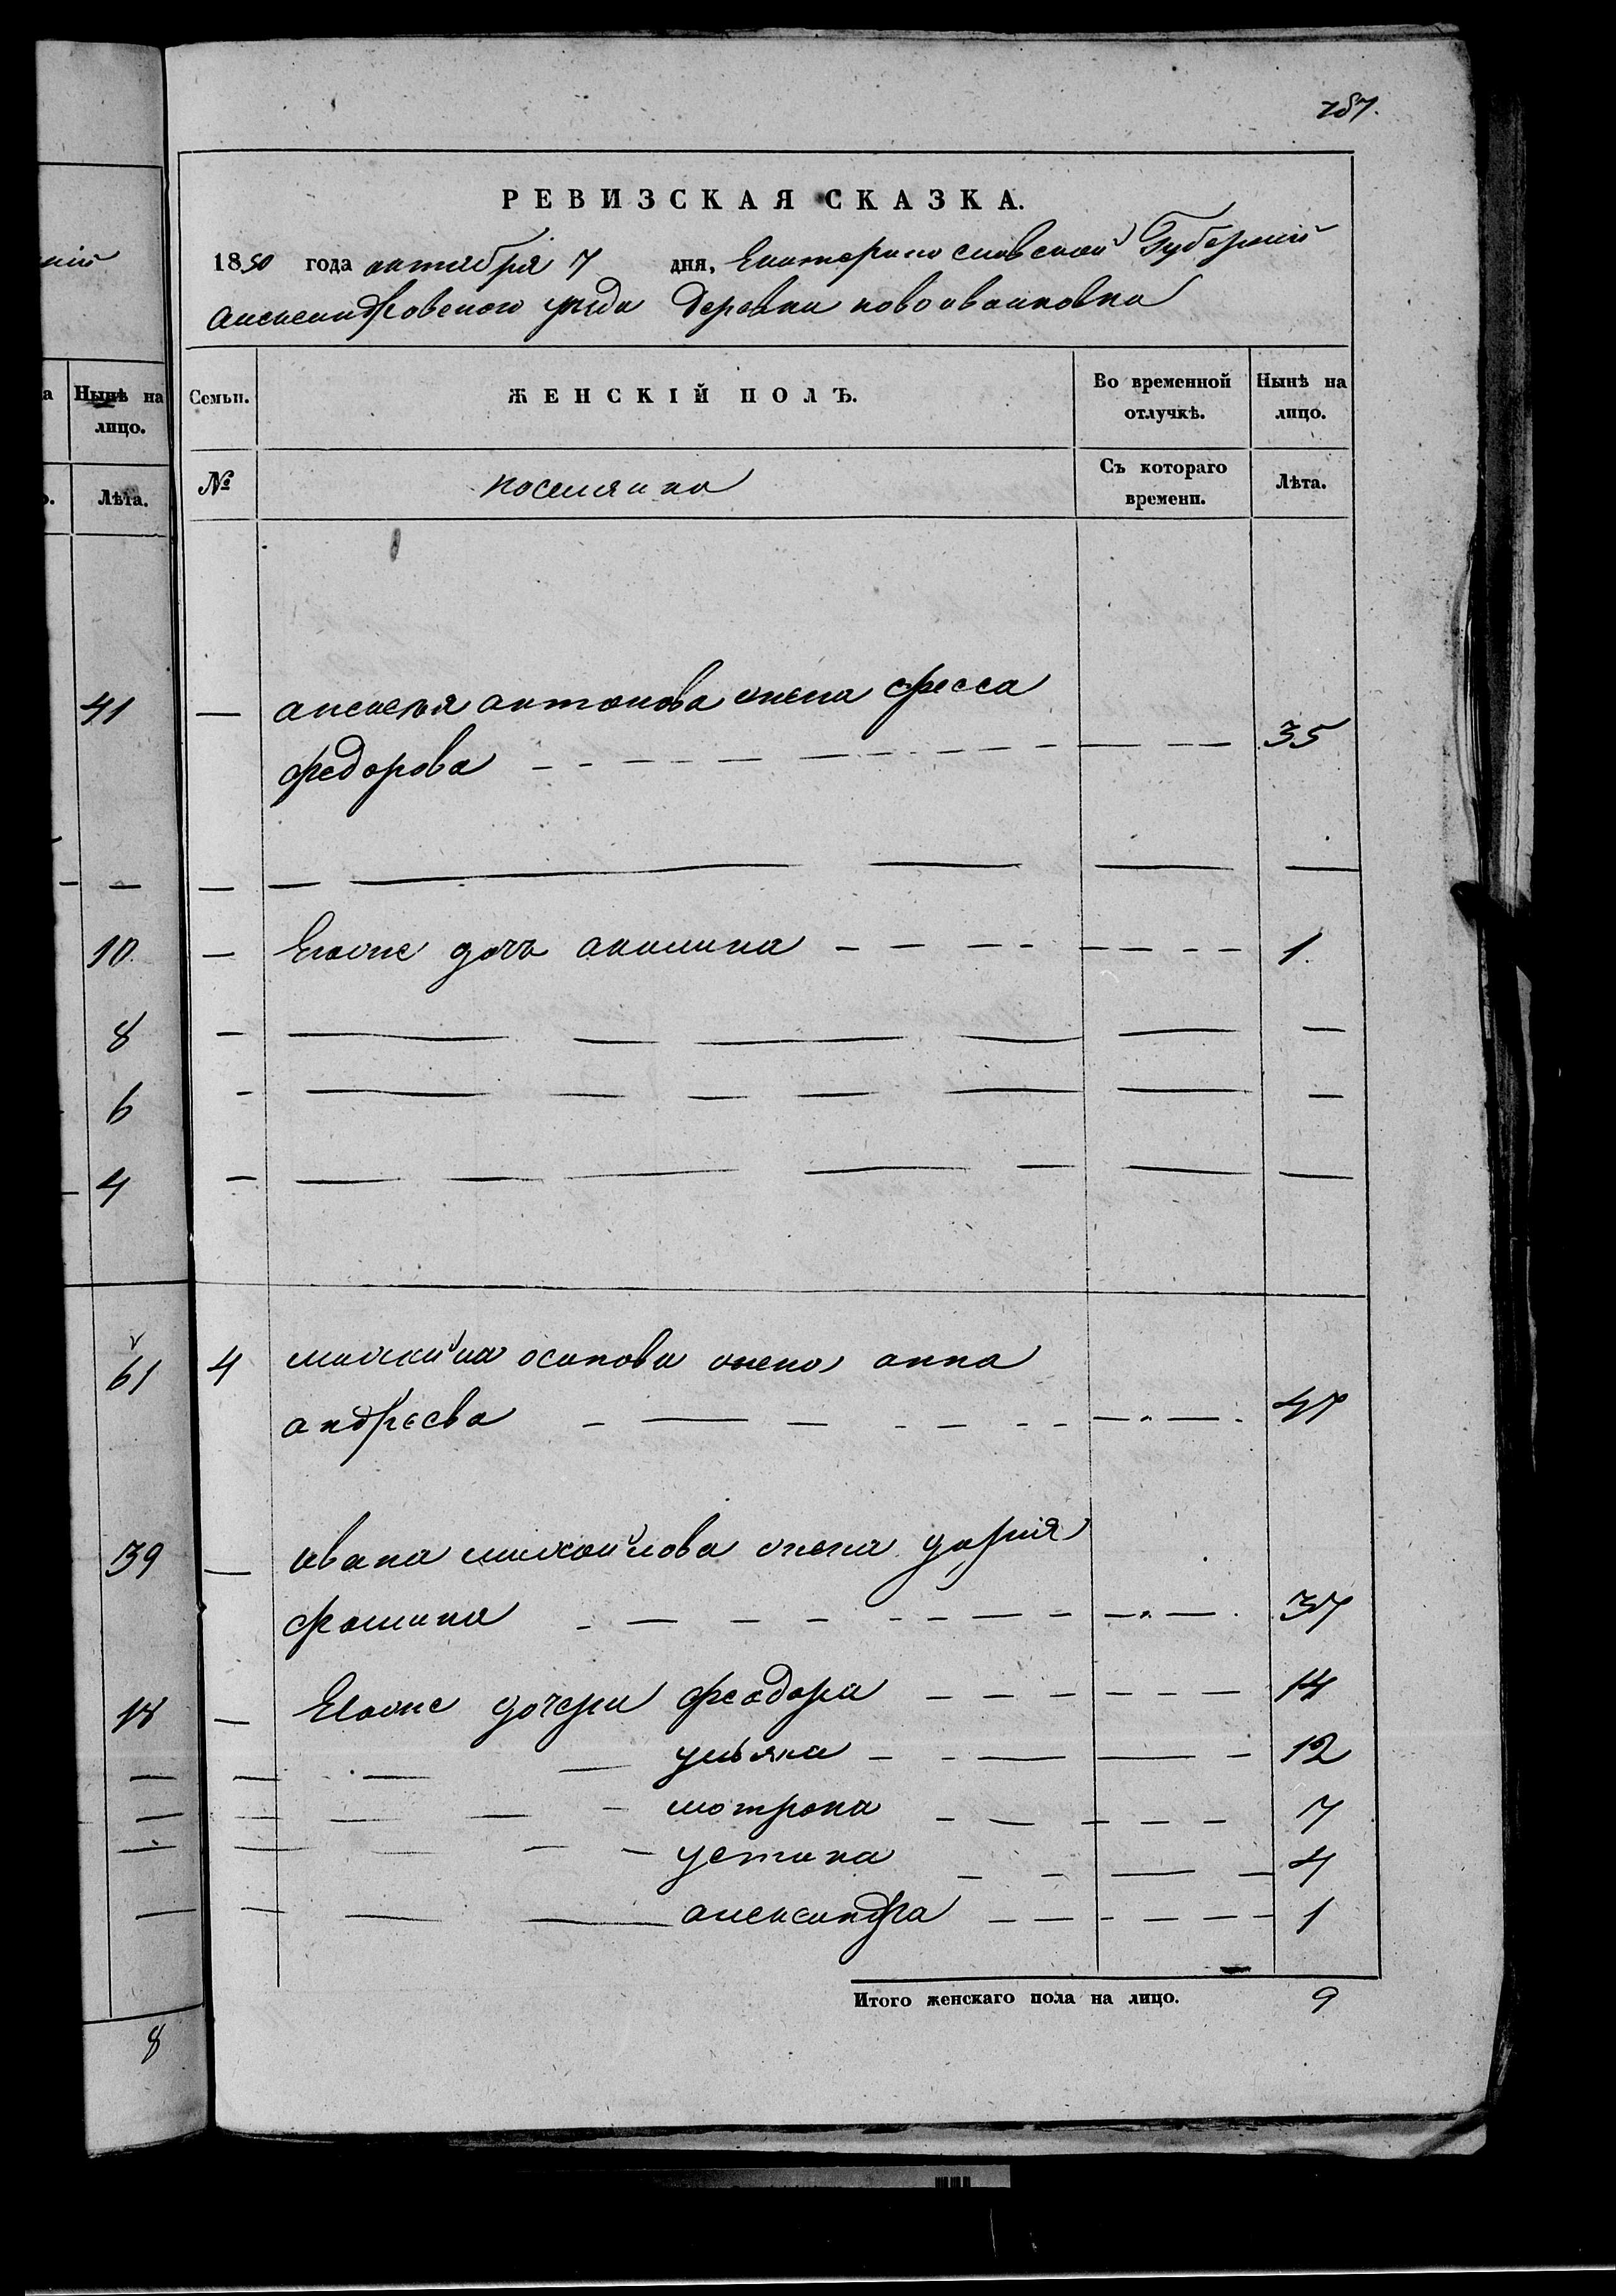 787.
РЕВИЗСКАЯ СКАЗКА.
1850 года октября 7 дня, Екатеринославской Губерніи
Александровского уезда Деревни новоивановка
ній
а Нынѣ на лицо.
Лѣта.
Семьи.
ЖЕНСКІЙ ПОЛЪ.
Во временной отлучкѣ.
Нынѣ на лицо.
№
поселянка
Съ котораго времени.
Лѣта.
41 — алексея антонова жена фесса
федорова — 35
— — — — —
10 — Егоже дочь акилина — 1.
8 — — — —
6 — — — —
4 — — — —
61 4 михайла осипова жена анна
андреева — 47
39 — ивана михайлова жена дарія
фомина — 37
18 — Егоже дочери феодора — 14
— — ульяна — 12
— — мотрона — 7
— — устина — 4
— — александра — 1
Итого женскаго пола на лицо. 9
8